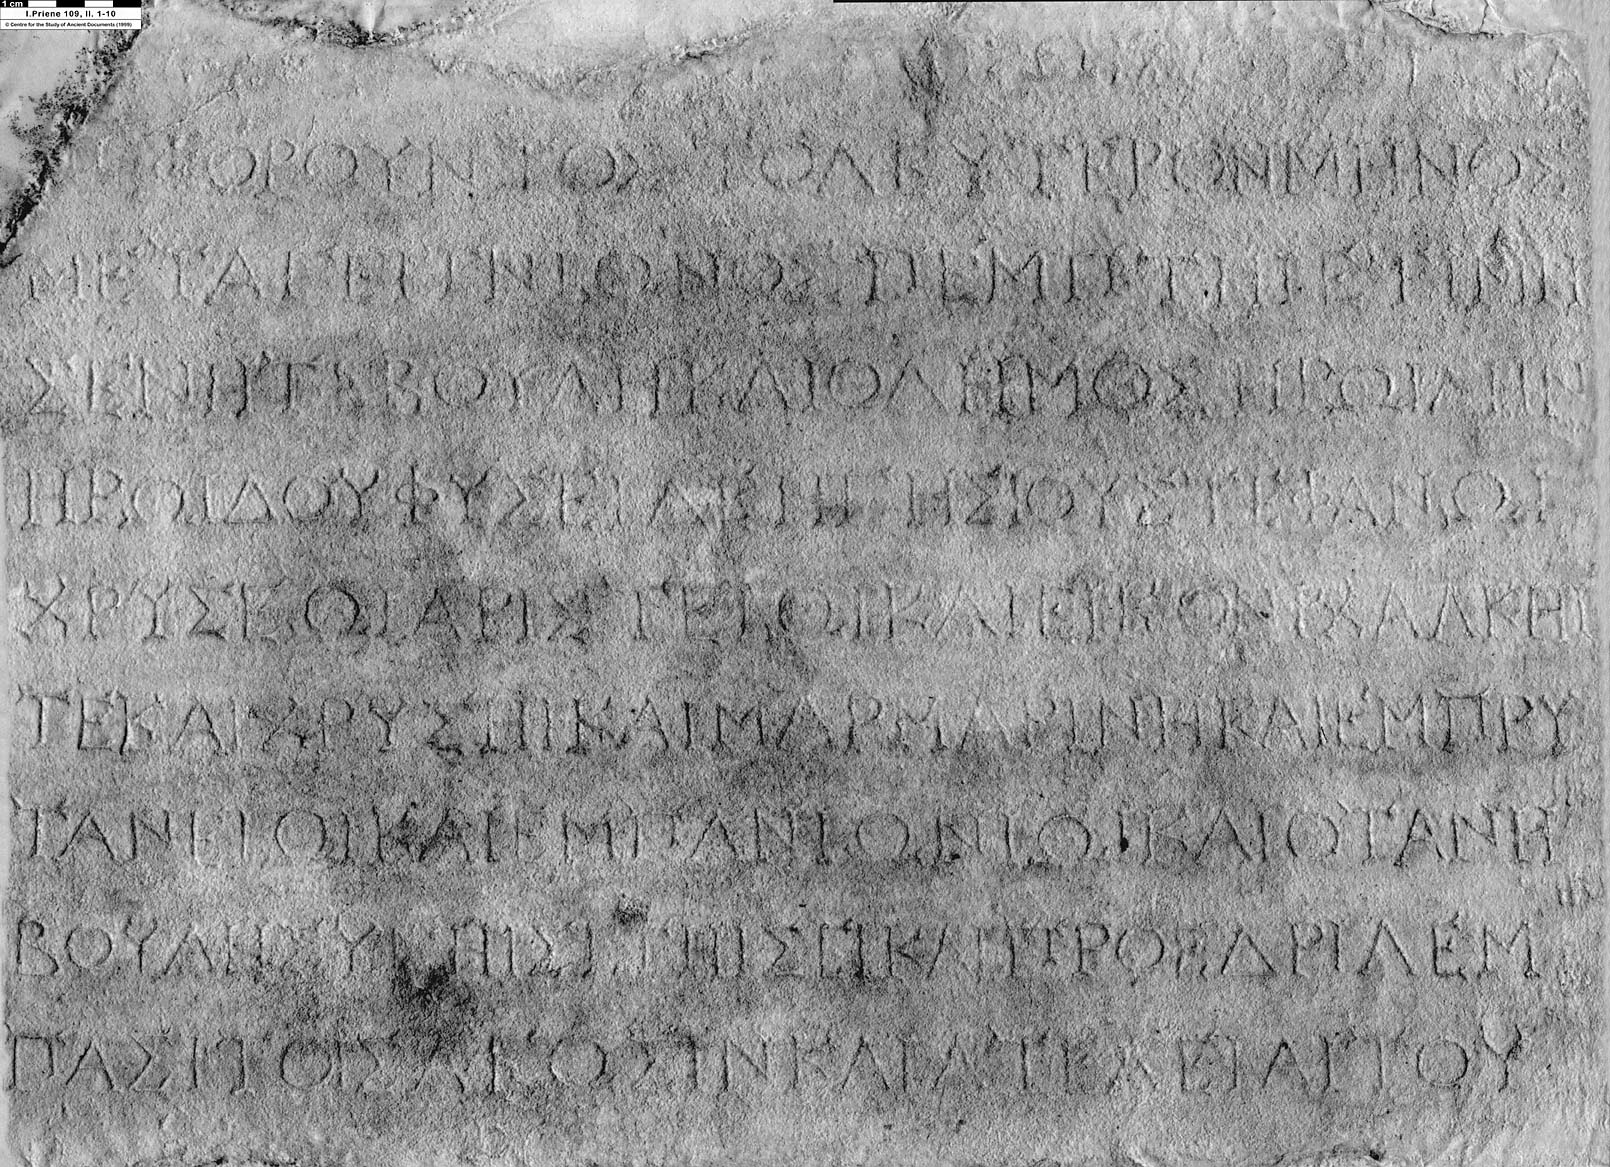 1 cm
I.Priene 109, ll. 1-10
© Centre for the Study of Ancient Documents (1999)
ΦΟΡΟΥΝΤΟΣ ΤΟΔΕΥΤΕΡΟΝΜΗΝΟΣ
ΜΕΤΑΓΕΙΤΝΙΩΝΟΣΠΕΜΠΤΗΙΕΤΙΜΗ
ΣΕΝΗΤΕΒΟΥΛΗΚΑΙΟΔΗΜΟΣΗΡΩΙΔΗΝ
ΗΡΩΙΔΟΥΦΥΣΕΙΔΕΗΓΗΣΙΟΥΣΤΕΦΑΝΩΙ
ΧΡΥΣΕΩΙΑΡΙΣΤΕΙΩΙΚΑΙΕΙΚΟΝΙΧΑΛΚΗΙ
ΤΕΚΑΙΧΡΥΣΗΙΚΑΙΜΑΡΜΑΡΙΝΗΚΑΙΕΜΠΡΥ
ΤΑΝΕΙΩΙΚΑΙΕΜΠΑΝΙΩΝΙΩΙΚΑΙΟΤΑΝΗ
ΒΟΥΛΗΣΥΝΗΙΣΙΤΗΙΣΕΙΚΑΙΠΡΟΕΔΡΙΑΕΜ
ΠΑΣΙΤΟΙΣΑΓΩΣΙΝΚΑΙΑΤΕΛΕΙΑΙΤΟΥ